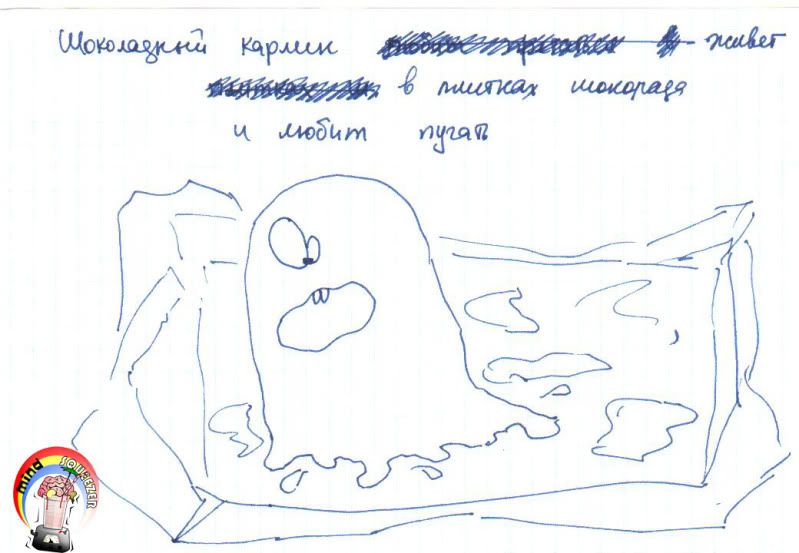 Шоколадный кармин живет
в плитках шокорада
и любит пугать
mind SQUEEZER